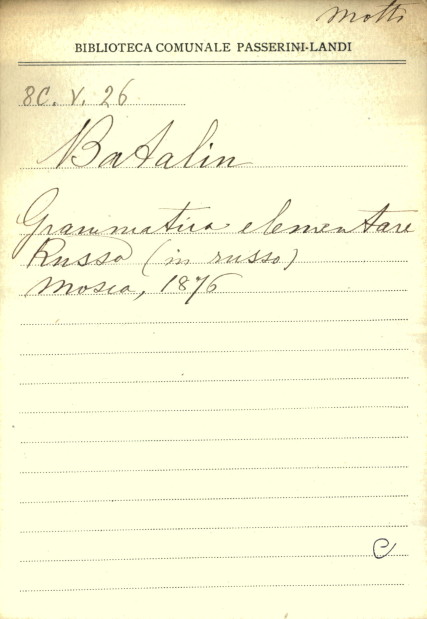 Motti
BIBLIOTECA COMUNALE PASSERINI-LANDI
8C. V. 26
Batalin
Grammatica elementare
Russa (in russo)
Mosca, 1876
C